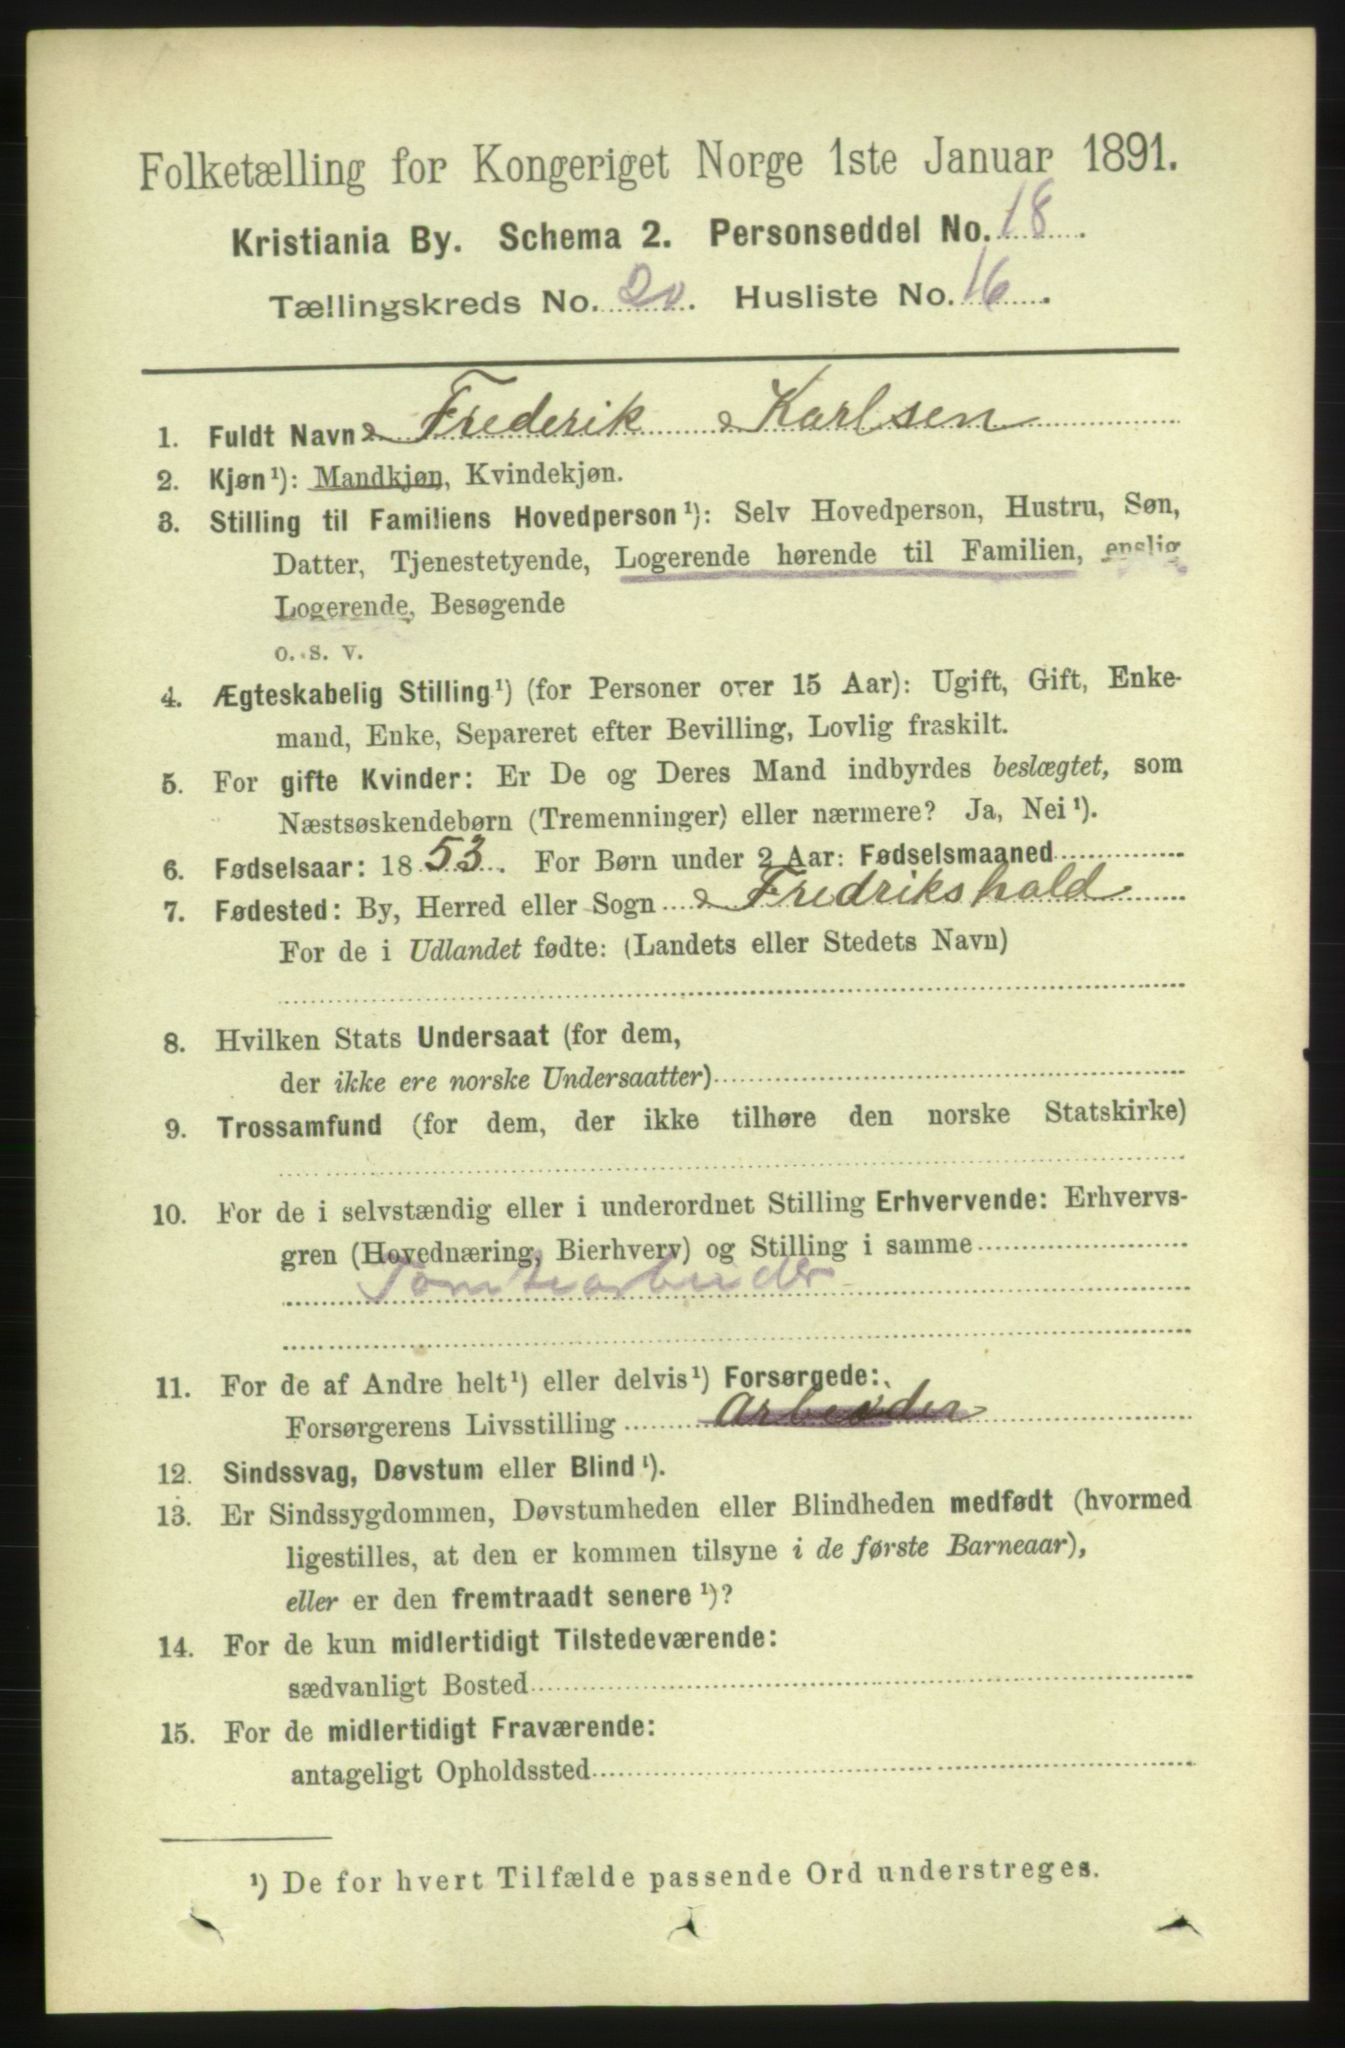 Folketælling for Kongeriget Norge 1ste Januar 1891.
Kristiania By. Schema 2. Personseddel No. 18.
Tællingskreds No. 20. Husliste No. 16.
1. Fuldt Navn Frederik Karlsen
2. Kjøn¹): Mandkjøn, Kvindekjøn.
3. Stilling til Familiens Hovedperson¹): Selv Hovedperson, Hustru, Søn,
Datter, Tjenestetyende, Logerende hørende til Familien, enslig
Logerende, Besøgende
o. s. v.
4. Ægteskabelig Stilling¹) (for Personer over 15 Aar): Ugift, Gift, Enke-
mand, Enke, Separeret efter Bevilling, Lovlig fraskilt.
5. For gifte Kvinder: Er De og Deres Mand indbyrdes beslægtet, som
Næstsøskendebørn (Tremenninger) eller nærmere? Ja, Nei¹).
6. Fødselsaar: 1853. For Børn under 2 Aar: Fødselsmaaned
7. Fødested: By, Herred eller Sogn Fredrikshald
For de i Udlandet fødte: (Landets eller Stedets Navn)
8. Hvilken Stats Undersaat (for dem,
der ikke ere norske Undersaatter)
9. Trossamfund (for dem, der ikke tilhøre den norske Statskirke)
10. For de i selvstændig eller i underordnet Stilling Erhvervende: Erhvervs-
gren (Hovednæring, Bierhverv) og Stilling i samme
Tomtearbeider
11. For de af Andre helt¹) eller delvis¹) Forsørgede:
Forsørgerens Livsstilling Arbeider
12. Sindssvag, Døvstum eller Blind¹).
13. Er Sindssygdommen, Døvstumheden eller Blindheden medfødt (hvormed
ligestilles, at den er kommen tilsyne i de første Barneaar),
eller er den fremtraadt senere¹)?
14. For de kun midlertidigt Tilstedeværende:
sædvanligt Bosted
15. For de midlertidigt Fraværende:
antageligt Opholdssted
¹) De for hvert Tilfælde passende Ord understreges.